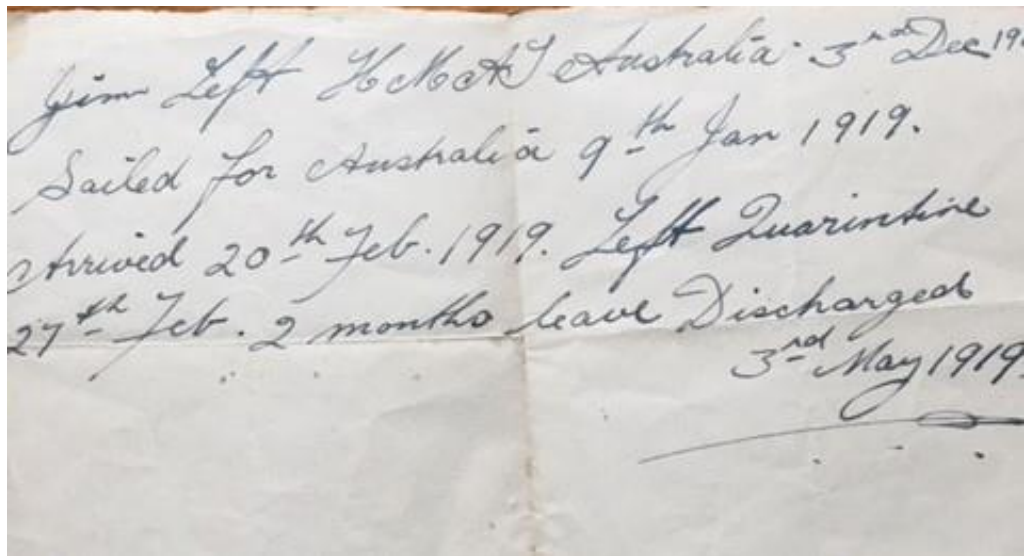 Jim Left HMAS Australia. 3rd Dec 19
Sailed for Australia 9th Jan 1919.
Arrived 20th Feb. 1919. Left Quarintine
27th Feb. 2 months leave Discharged
3rd May 1919.